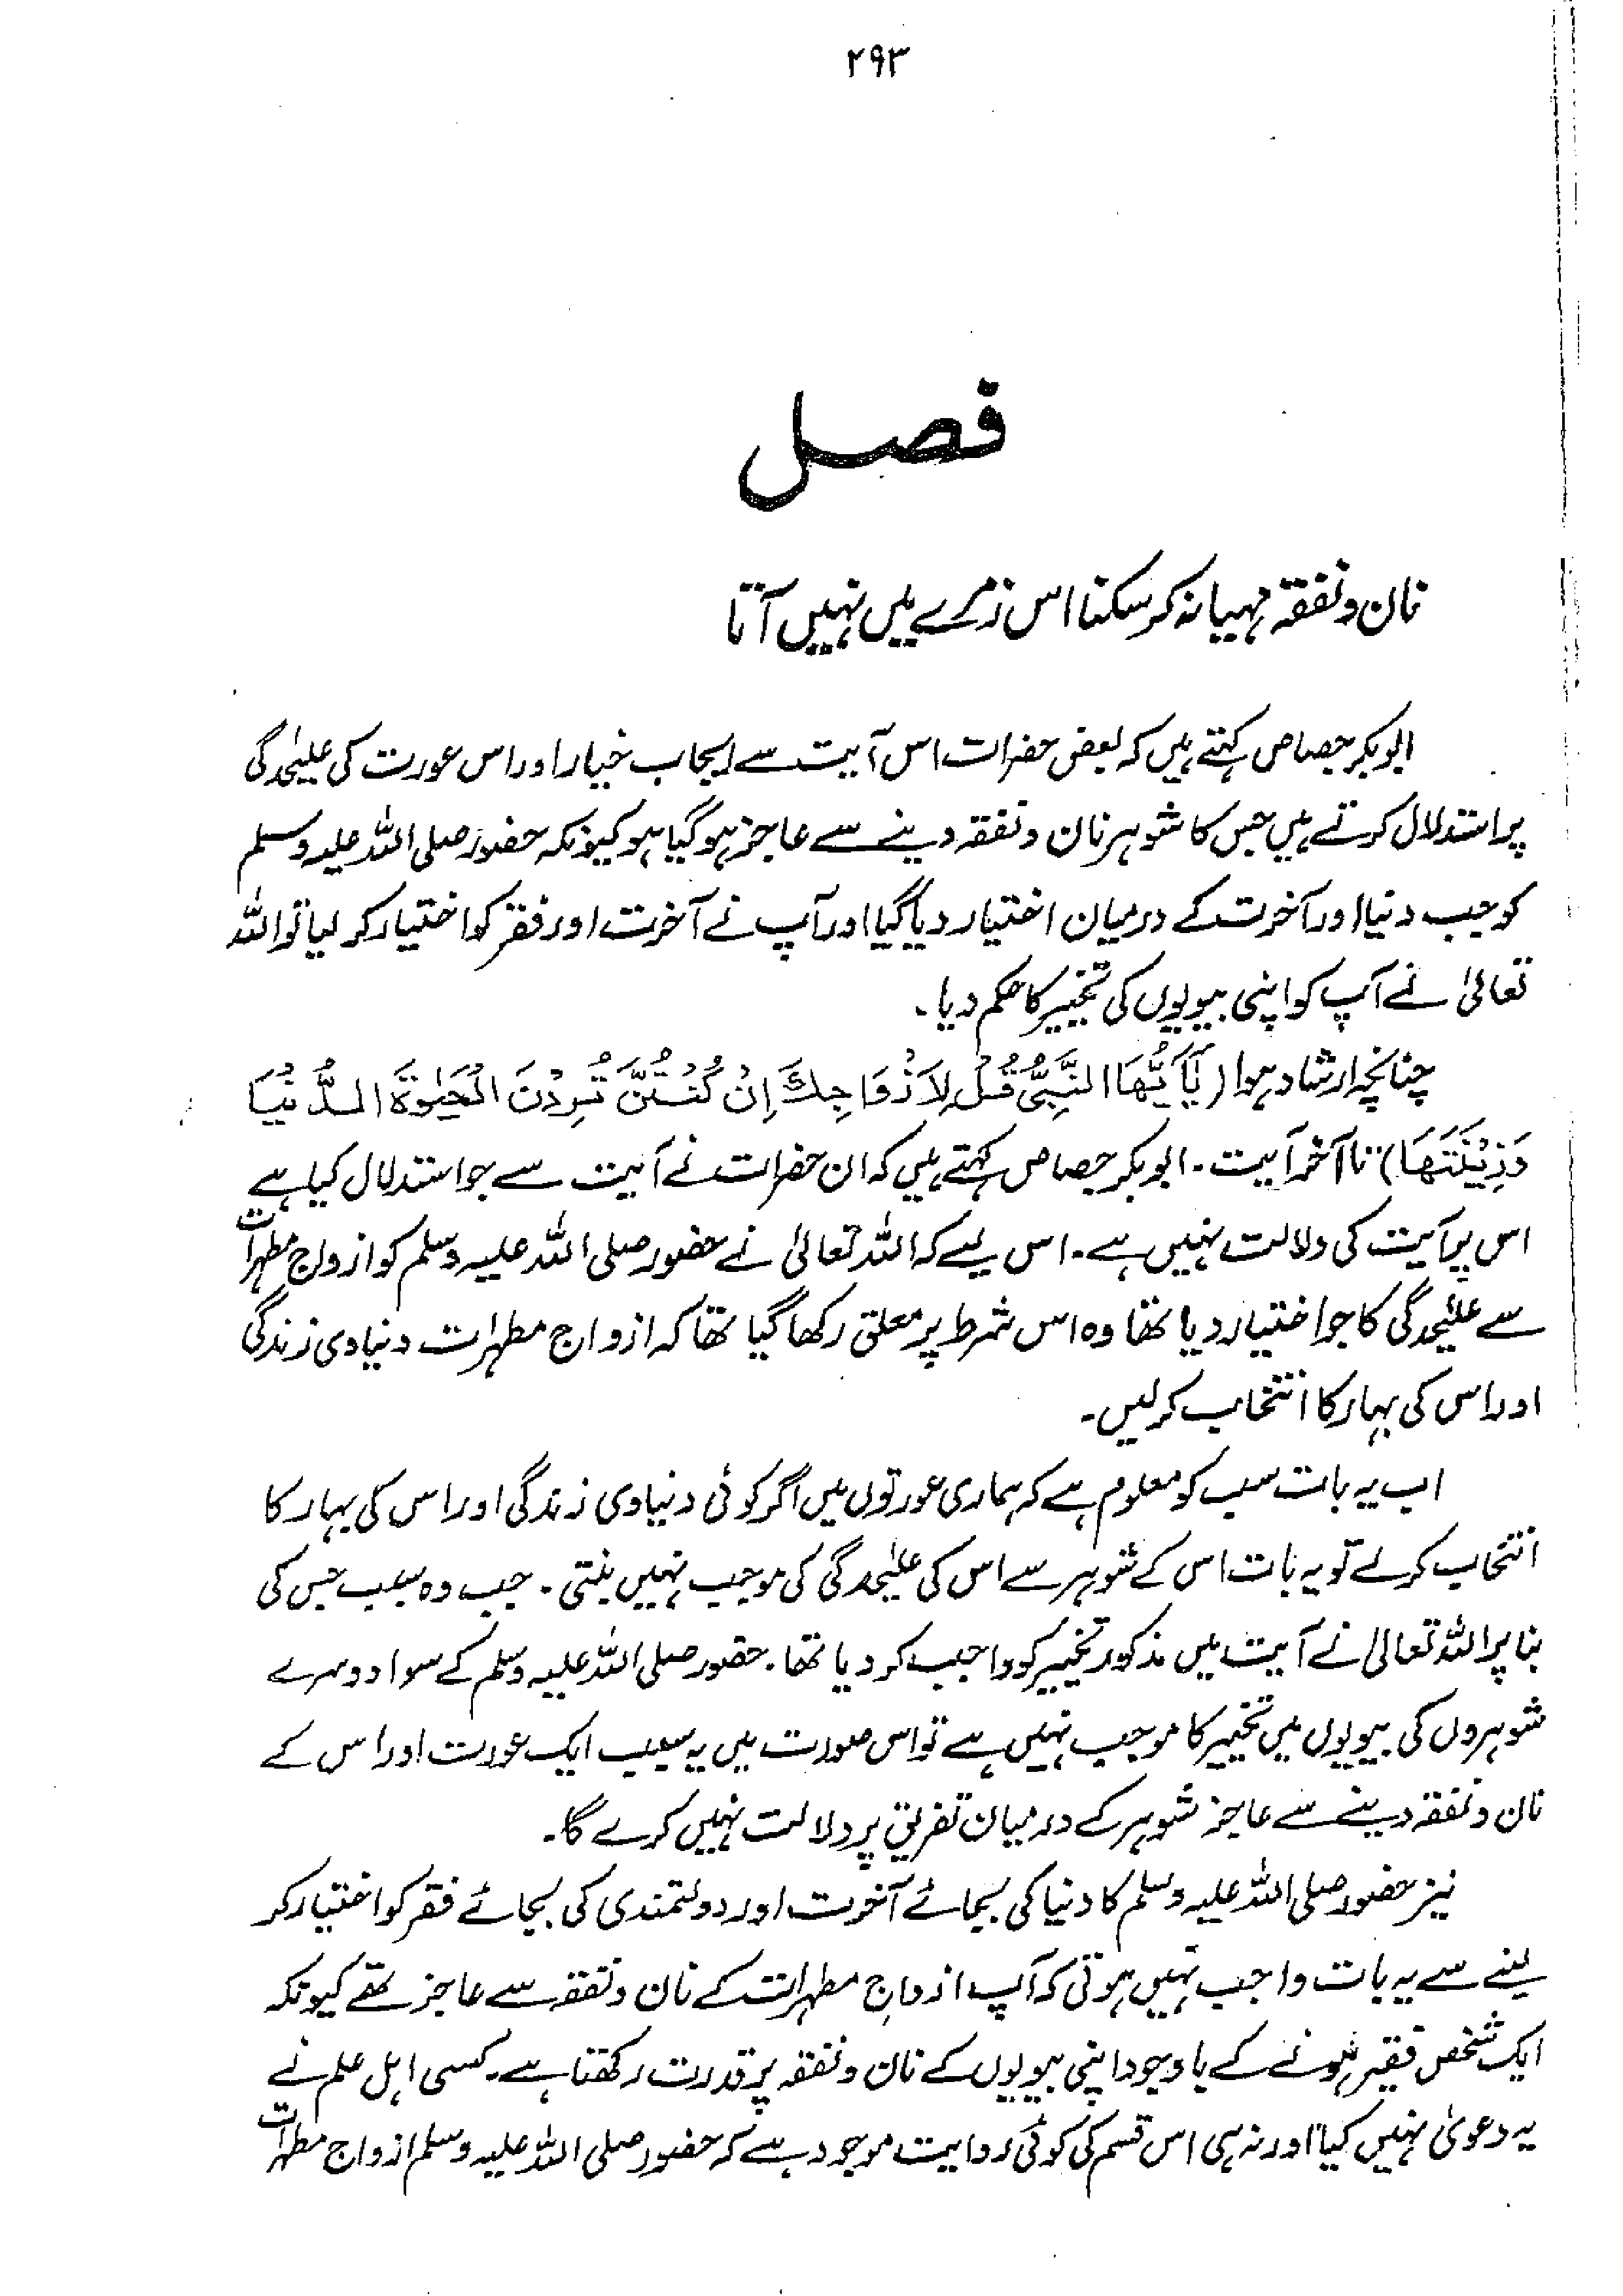 ۲۹۳
فصل
نان ونفقہ مہیا نہ کر سکنا اس زمرے میں نہیں آتا
ابوبکر جصاص کہتے ہیں کہ بعض حضرات اس آیت سے ایجاب خیار اور اس عورت کی علیٰحدگی
پر استدلال کرتے ہیں جس کا شوہر نان ونفقہ دینے سے عاجز ہو گیا ہو کیونکہ حضور صلی اللہ علیہ وسلم
کو جب دنیا اور آخرت کے درمیان اختیار دیا گیا اور آپ نے آخرت اور فقر کو اختیار کر لیا تو اللہ
تعالیٰ نے آپ کو اپنی بیویوں کی تخییر کا حکم دیا۔
چنانچہ ارشاد ہوا (یٰٓاَیُّھَا النَّبِیُّ قُلْ لِاَزْوَاجِکَ اِنْ کُنْتُنَّ تُرِدْنَ الْحَیٰوۃَ الدُّنْیَا
وَزِیْنَتَھَا) تا آخر آیت۔ ابوبکر جصاص کہتے ہیں کہ ان حضرات نے آیت سے جو استدلال کیا ہے
اس پر آیت کی دلالت نہیں ہے۔ اس لیے کہ اللہ تعالیٰ نے حضور صلی اللہ علیہ وسلم کو ازواج مطہرات
سے علیٰحدگی کا جو اختیار دیا تھا وہ اس شرط پر معلق رکھا گیا تھا کہ ازواج مطہرات دنیاوی زندگی
اور اس کی بہار کا انتخاب کرلیں۔
اب یہ بات سب کو معلوم ہے کہ ہماری عورتوں میں اگر کوئی دنیاوی زندگی اور اس کی بہار کا
انتخاب کرلے تو یہ بات اس کے شوہر سے اس کی علیٰحدگی کی موجب نہیں بنتی۔ جب وہ سبب جس کی
بنا پر اللہ تعالیٰ نے آیت میں مذکور تخییر کو واجب کر دیا تھا۔ حضور صلی اللہ علیہ وسلم کے سوا دوسرے
شوہروں کی بیویوں میں تخییر کا موجب نہیں ہے تو اس صورت میں یہ سبب ایک عورت اور اس کے
نان ونفقہ دینے سے عاجز شوہر کے درمیان تفریق پر دلالت نہیں کرے گا۔
نیز حضور صلی اللہ علیہ وسلم کا دنیا کی بجائے آخرت اور دولتمندی کی بجائے فقر کو اختیار کر
لینے سے یہ بات واجب نہیں ہوتی کہ آپ ازواج مطہرات کے نان ونفقہ سے عاجز تھے کیونکہ
ایک شخص فقیر ہونے کے باوجود اپنی بیویوں کے نان ونفقہ پر قدرت رکھتا ہے۔ کسی اہل علم نے
یہ دعویٰ نہیں کیا اور نہ ہی اس قسم کی کوئی روایت موجود ہے کہ حضور صلی اللہ علیہ وسلم ازواج مطہرات